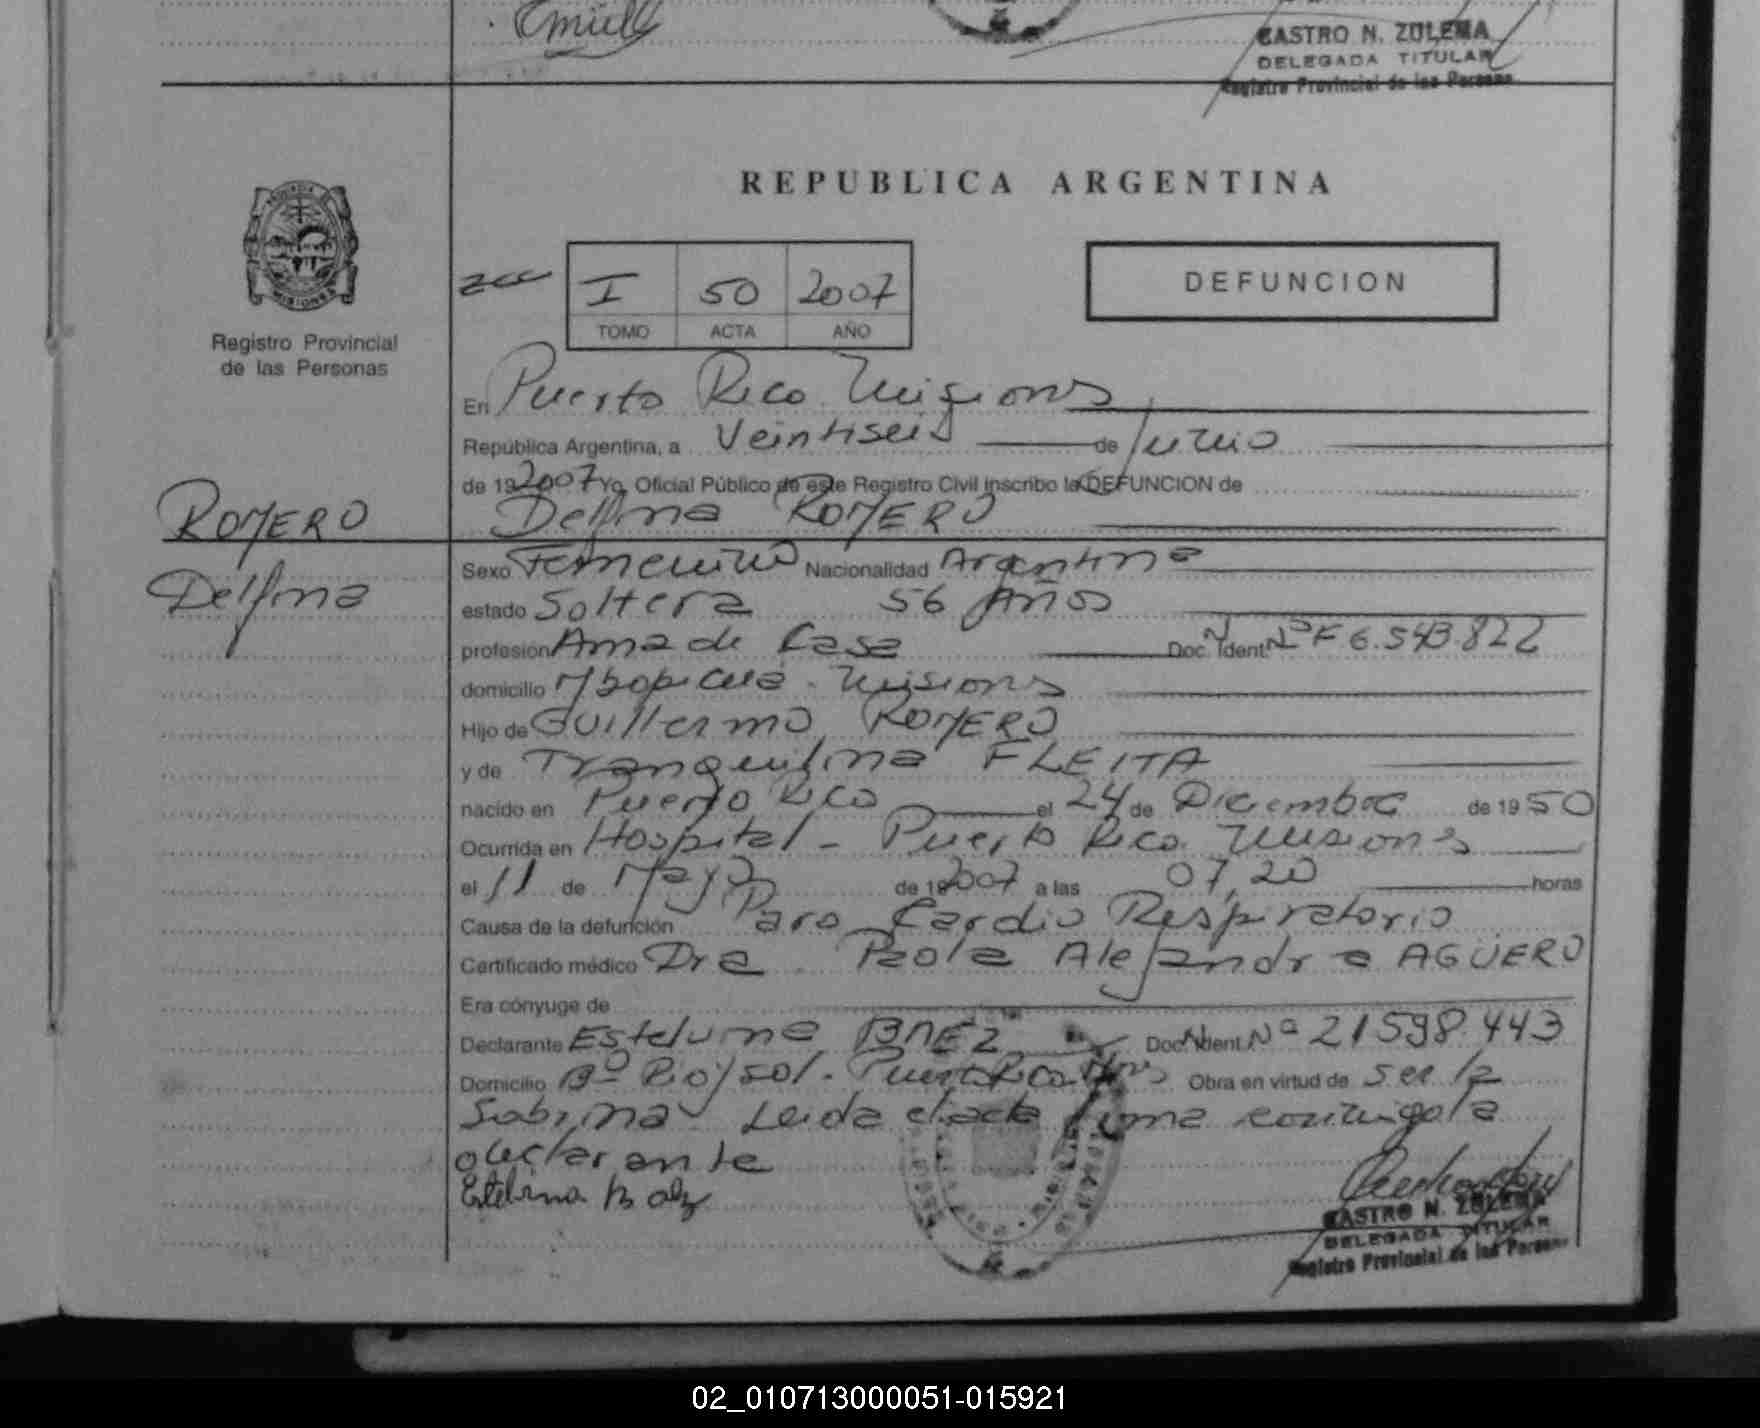 CASTRO N. ZULEMA
DELEGADA TITULAR
Registro Provincial de las Persona
REPUBLICA ARGENTINA
MISIONES
Registro Provincial
de las Personas
I 50 2007
TOMO ACTA AÑO
DEFUNCION
En Puerto Rico Misiones
República Argentina, a Veintiseis de Junio
de 19 2007 Yo, Oficial Público de este Registro Civil inscribo la DEFUNCION de
ROMERO Delfina ROMERO
Delfina
Sexo Femenino Nacionalidad Argentina
estado Soltera 56 Años
profesión Ama de Casa Doc. Ident Nº F 6.543.822
domicilio Misiones
Hijo de Guillermo ROMERO
y de Tranquilina FLEITA
nacido en Puerto Rico el 24 de Diciembre de 1950
Ocurrida en Hospital - Puerto Rico Misiones
el 11 de Mayo de 19 2007 a las 07,20 horas
Causa de la defunción Paro Cardio Respiratorio
Certificado médico Dra. Paola Alejandra AGÜERO
Era cónyuge de
Declarante BAEZ Doc. Ident Nº 21598.443
Domicilio Bº - Puerto Rico Obra en virtud de ser la
Sobrina Leida el acta firma conmigo la
declarante
CASTRO N. ZULEMA
DELEGADA TITULAR
Registro Provincial de las Persona
02_010713000051-015921